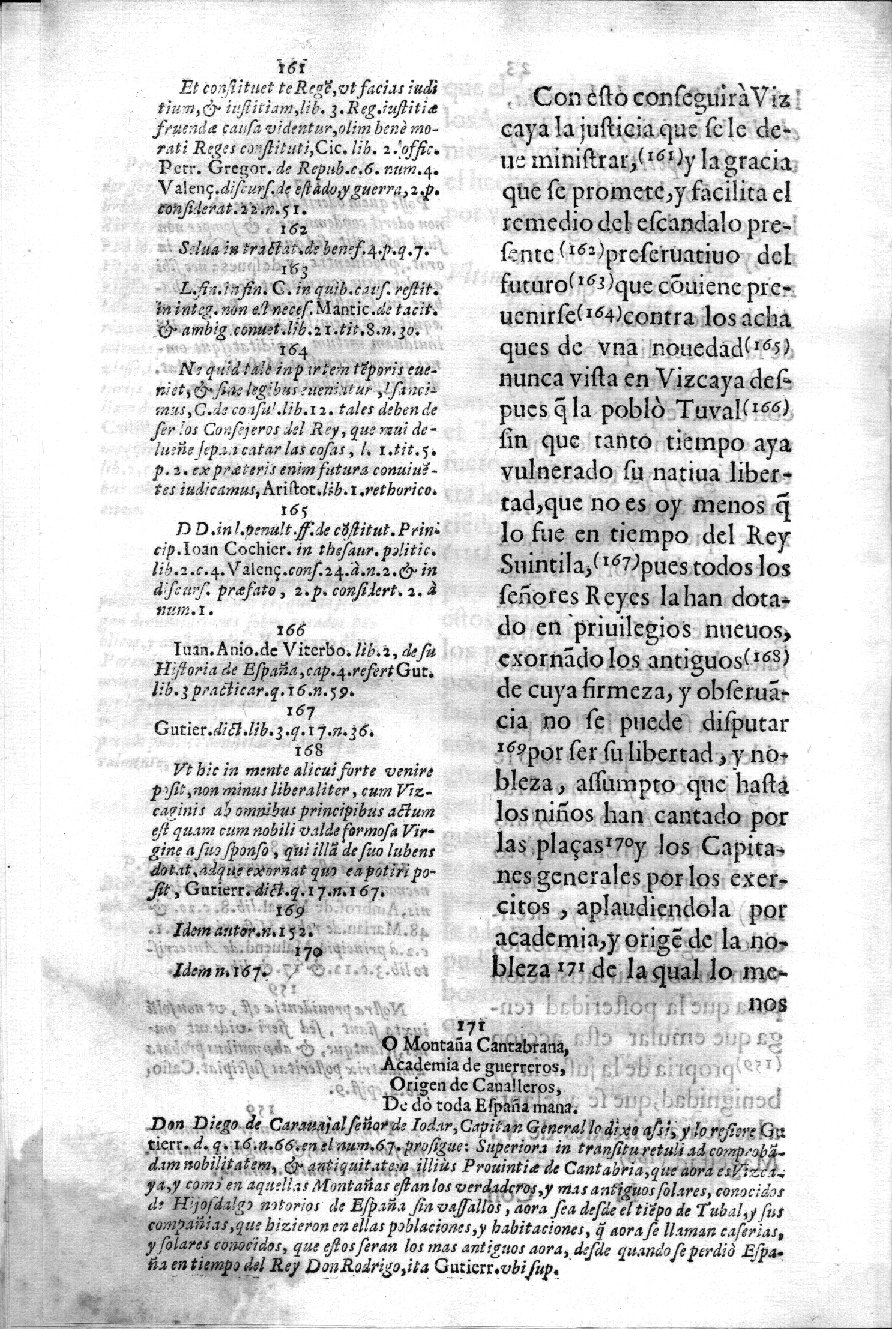 161
Et constituet te Regē, vt facias iudi
tium, & iustitiam, lib. 3. Reg. iustitiæ
fruendæ causa videntur, olim benè mo-
rati Reges constituti, Cic. lib. 2. offic.
Petr. Gregor. de Repub. c. 6. num. 4.
Valenç. discurs. de estado, y guerra, 2. p.
considerat. 22. n. 51.
162
Selua in tractat. de benef. 4. p. q. 7.
163
L. fin. in fin. C. in quib. caus. restit.
in integ. non est neces. Mantic. de tacit.
& ambig. conuet. lib. 21. tit. 8. n. 30.
164
Ne quid tale in pirtem tēporis eue-
niet, & sine legibus eueniatur, l. sanci-
mus, C. de consul. lib. 12. tales deben de
ser los Consejeros del Rey, que mui de-
lueñe sepan catar las cosas, l. 1. tit. 5.
p. 2. ex præteris enim futura conuiuē-
tes iudicamus, Aristot. lib. 1. rethorico.
165
DD. in l. penult. ff. de cōstitut. Prin-
cip. Ioan Cochier. in thesaur. politic.
lib. 2. c. 4. Valenç. cons. 24. à n. 2. & in
discurs. præfato, 2. p. considert. 2. à
num. 1.
166
Iuan. Anio. de Viterbo. lib. 2, de su
Historia de España, cap. 4. refert Gut.
lib. 3 practicar. q. 16. n. 59.
167
Gutier. dict. lib. 3. q. 17. n. 36.
168
Vt hic in mente alicui forte venire
posit, non minus liberaliter, cum Viz-
caginis ab omnibus principibus actum
est quam cum nobili valde formosa Vir-
gine a suo sponso, qui illā de suo lubens
dotat, adque exornat quo ea potiri po-
sit, Gutierr. dict. q. 17. n. 167.
169
Idem autor. n. 152.
170
Idem n. 167.
Con esto conseguirà Viz
caya la justicia que se le de-
ue ministrar, (161) y la gracia
que se promete, y facilita el
remedio del escandalo pre-
sente (162) preseruatiuo del
futuro (163) que cōuiene pre-
uenirse (164) contra los acha
ques de vna nouedad (165)
nunca vista en Vizcaya des-
pues q̄ la poblò Tuval (166)
sin que tanto tiempo aya
vulnerado su natiua liber-
tad, que no es oy menos q̄
lo fue en tiempo del Rey
Suintila, (167) pues todos los
señores Reyes la han dota-
do en priuilegios nueuos,
exornādo los antiguos (168)
de cuya firmeza, y obseruā-
cia no se puede disputar
169 por ser su libertad, y no-
bleza, assumpto que hasta
los niños han cantado por
las plaças 170 y los Capita-
nes generales por los exer-
citos, aplaudiendola por
academia, y origē de la no-
bleza 171 de la qual lo me-
nos
171
O Montaña Cantabrana,
Academia de guerreros,
Origen de Caualleros,
De dò toda España mana.
Don Diego de Carauajal señor de Iodar, Capitan General lo dixo assi, y lo refiere Gu
tierr. d. q. 16. n. 66. en el num. 67. prosigue: Superiora in transitu retuli ad comprobā-
dam nobilitatem, & antiquitatem illius Prouintiæ de Cantabria, que aora es Vizca-
ya, y como en aquellas Montañas estan los verdaderos, y mas antiguos solares, conocidos
de Hijosdalgo notorios de España sin vassallos, aora sea desde el tiēpo de Tubal, y sus
compañias, que hizieron en ellas poblaciones, y habitaciones, q̄ aora se llaman caserias,
y solares conocidos, que estos seran los mas antiguos aora, desde quando se perdiò Espa-
ña en tiempo del Rey Don Rodrigo, ita Gutierr. vbi sup.